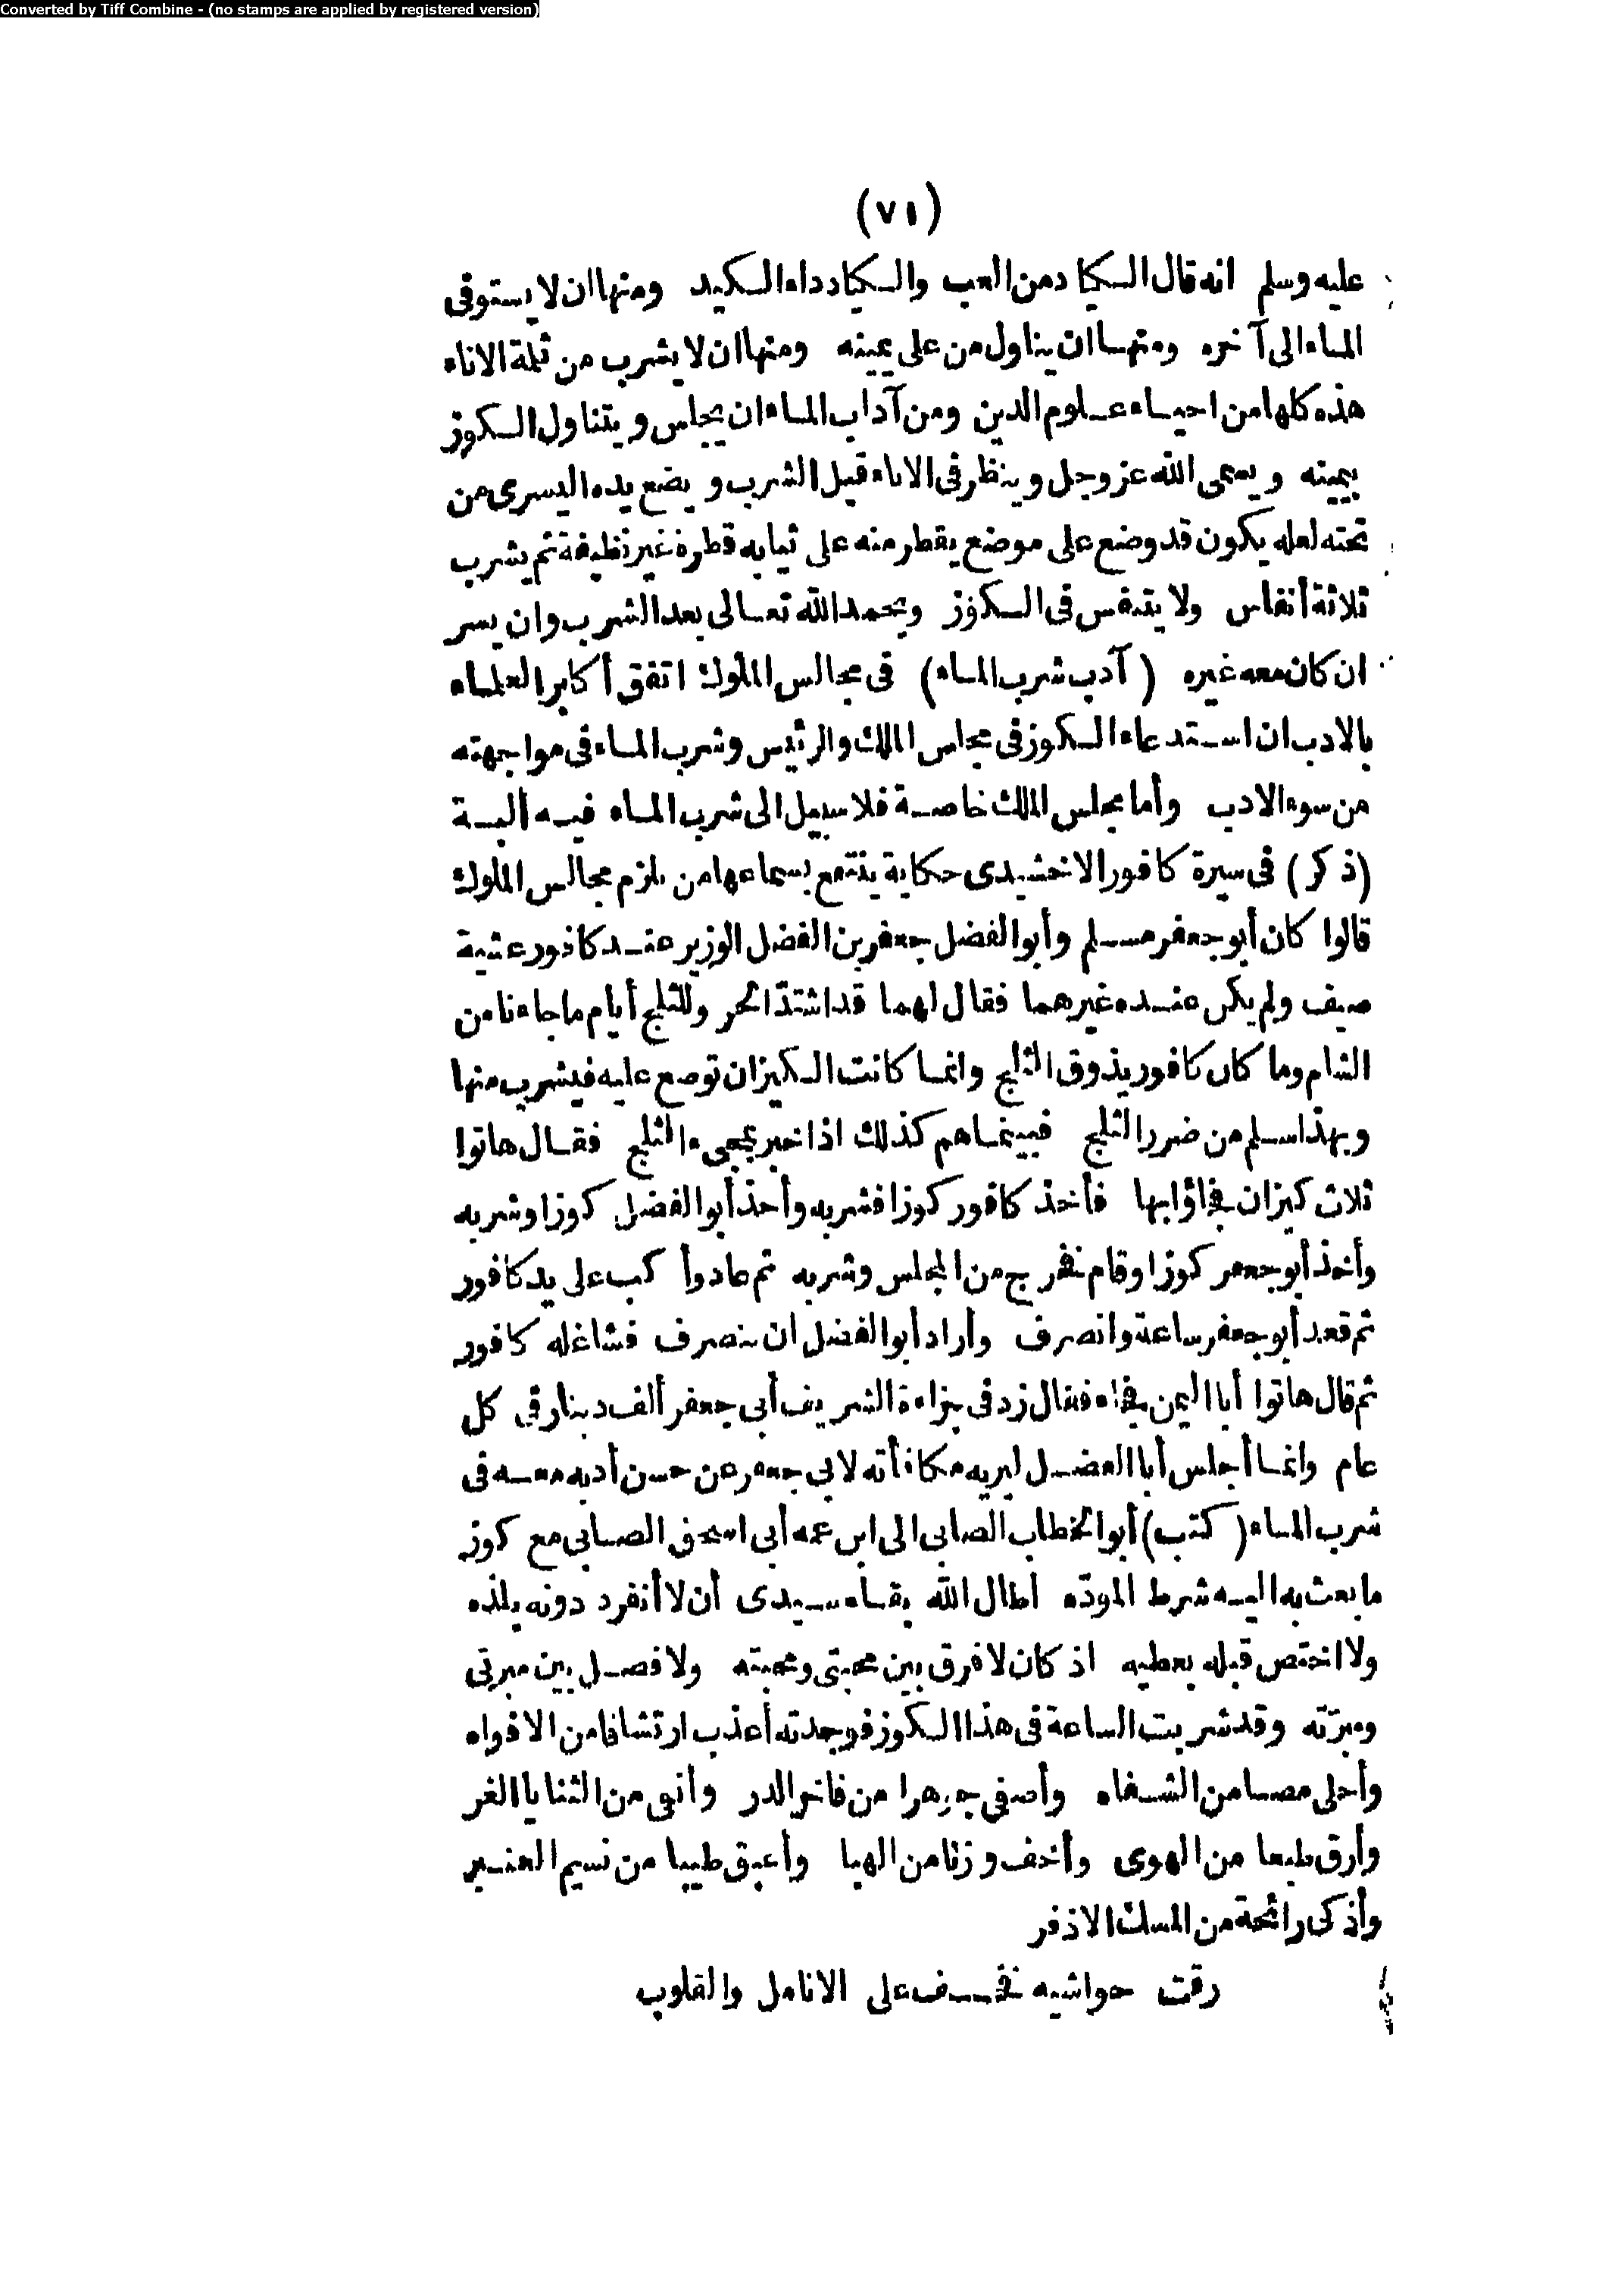 Converted by Tiff Combine - (no stamps are applied by registered version)
(٧١)
عليه وسلم انه قال الكباد من العب والكباد داء الكبد ومنها ان لا يستوفى
الماء الى آخره ومنها ان يناول من على يمينه ومنها ان لا يشرب من ثلمة الاناء
هذه كلها من احياء علوم الدين ومن آداب الماء ان يجلس ويتناول الكوز
بيمينه ويسمى الله عز وجل وينظر فى الاناء قبل الشرب ويضع يده اليسرى من
تحته لعله يكون قد وضع على موضع يقطر منه على ثيابه قطرة غير نظيفة ثم يشرب
ثلاثة أنفاس ولا يتنفس فى الكوز ويحمد الله تعالى بعد الشرب وان يسر
ان كان معه غيره (آدب شرب الماء) فى مجالس الملوك اتفق أكابر العلماء
بالادب ان استدعاء الكوز فى مجلس الملك والرئيس وشرب الماء فى مواجهته
من سوء الادب وأما مجلس الملك خاصة فلا سبيل الى شرب الماء فيه ألبتة
(ذكر) فى سيرة كافور الاخشيدى حكاية ينتفع بسماعها من يلزم مجالس الملوك
قالوا كان أبو جعفر مسلم وأبو الفضل جعفر بن الفضل الوزير عند كافور عشية
صيف ولم يكن عنده غيرهما فقال لهما قد اشتد الحر وللثلج أيام ما جاءنا من
الشام وما كان كافور يذوق الثلج وانما كانت الكيزان توضع عليه فيشرب منها
وبهذا سلم من ضرر الثلج فبينما هم كذلك اذا خبر بمجىء الثلج فقال هاتوا
ثلاث كيزان فجاؤا بها فأخذ كافور كوزا فشربه وأخذ أبو الفضل كوزا وشربه
وأخذ أبو جعفر كوزا وقام فخرج من المجلس وشربه ثم عاد وأكب على يد كافور
ثم قعد أبو جعفر ساعة وانصرف وأراد أبو الفضل ان ينصرف فشاغله كافور
ثم قال هاتوا أبا اليمن فجاء فقال زد فى جراءة الشريف أبى جعفر ألف دينار فى كل
عام وانما أجلس أبا الفضل ليريه مكافأته لابى جعفر عن حسن أدبه معه فى
شرب الماء (كتب) أبو الخطاب الصابى الى ابن عمه أبى اسحق الصابى مع كوز
ما بعث به اليه شرط المودّه أطال الله بقاء سيدى أن لا أنفرد دونه بلذه
ولا اختص قبله بعطيه اذ كان لا فرق بين محبتى ومحبته ولا فصل بين مبرتى
ومبرّته وقد شربت الساعة فى هذا الكوز فوجدته أعذب ارتشافا من الافواه
وأحلى مصا من الشفاه وأصفى جوهرا من فاخر الدر وأنقى من الثنايا الغر
وأرق طبعا من الهوى وأخف وزنا من الهبا وأعبق طيبا من نسيم العنبر
وأذكى رائحة من المسك الاذفر
رقت حواشيه فخف على الانامل والقلوب